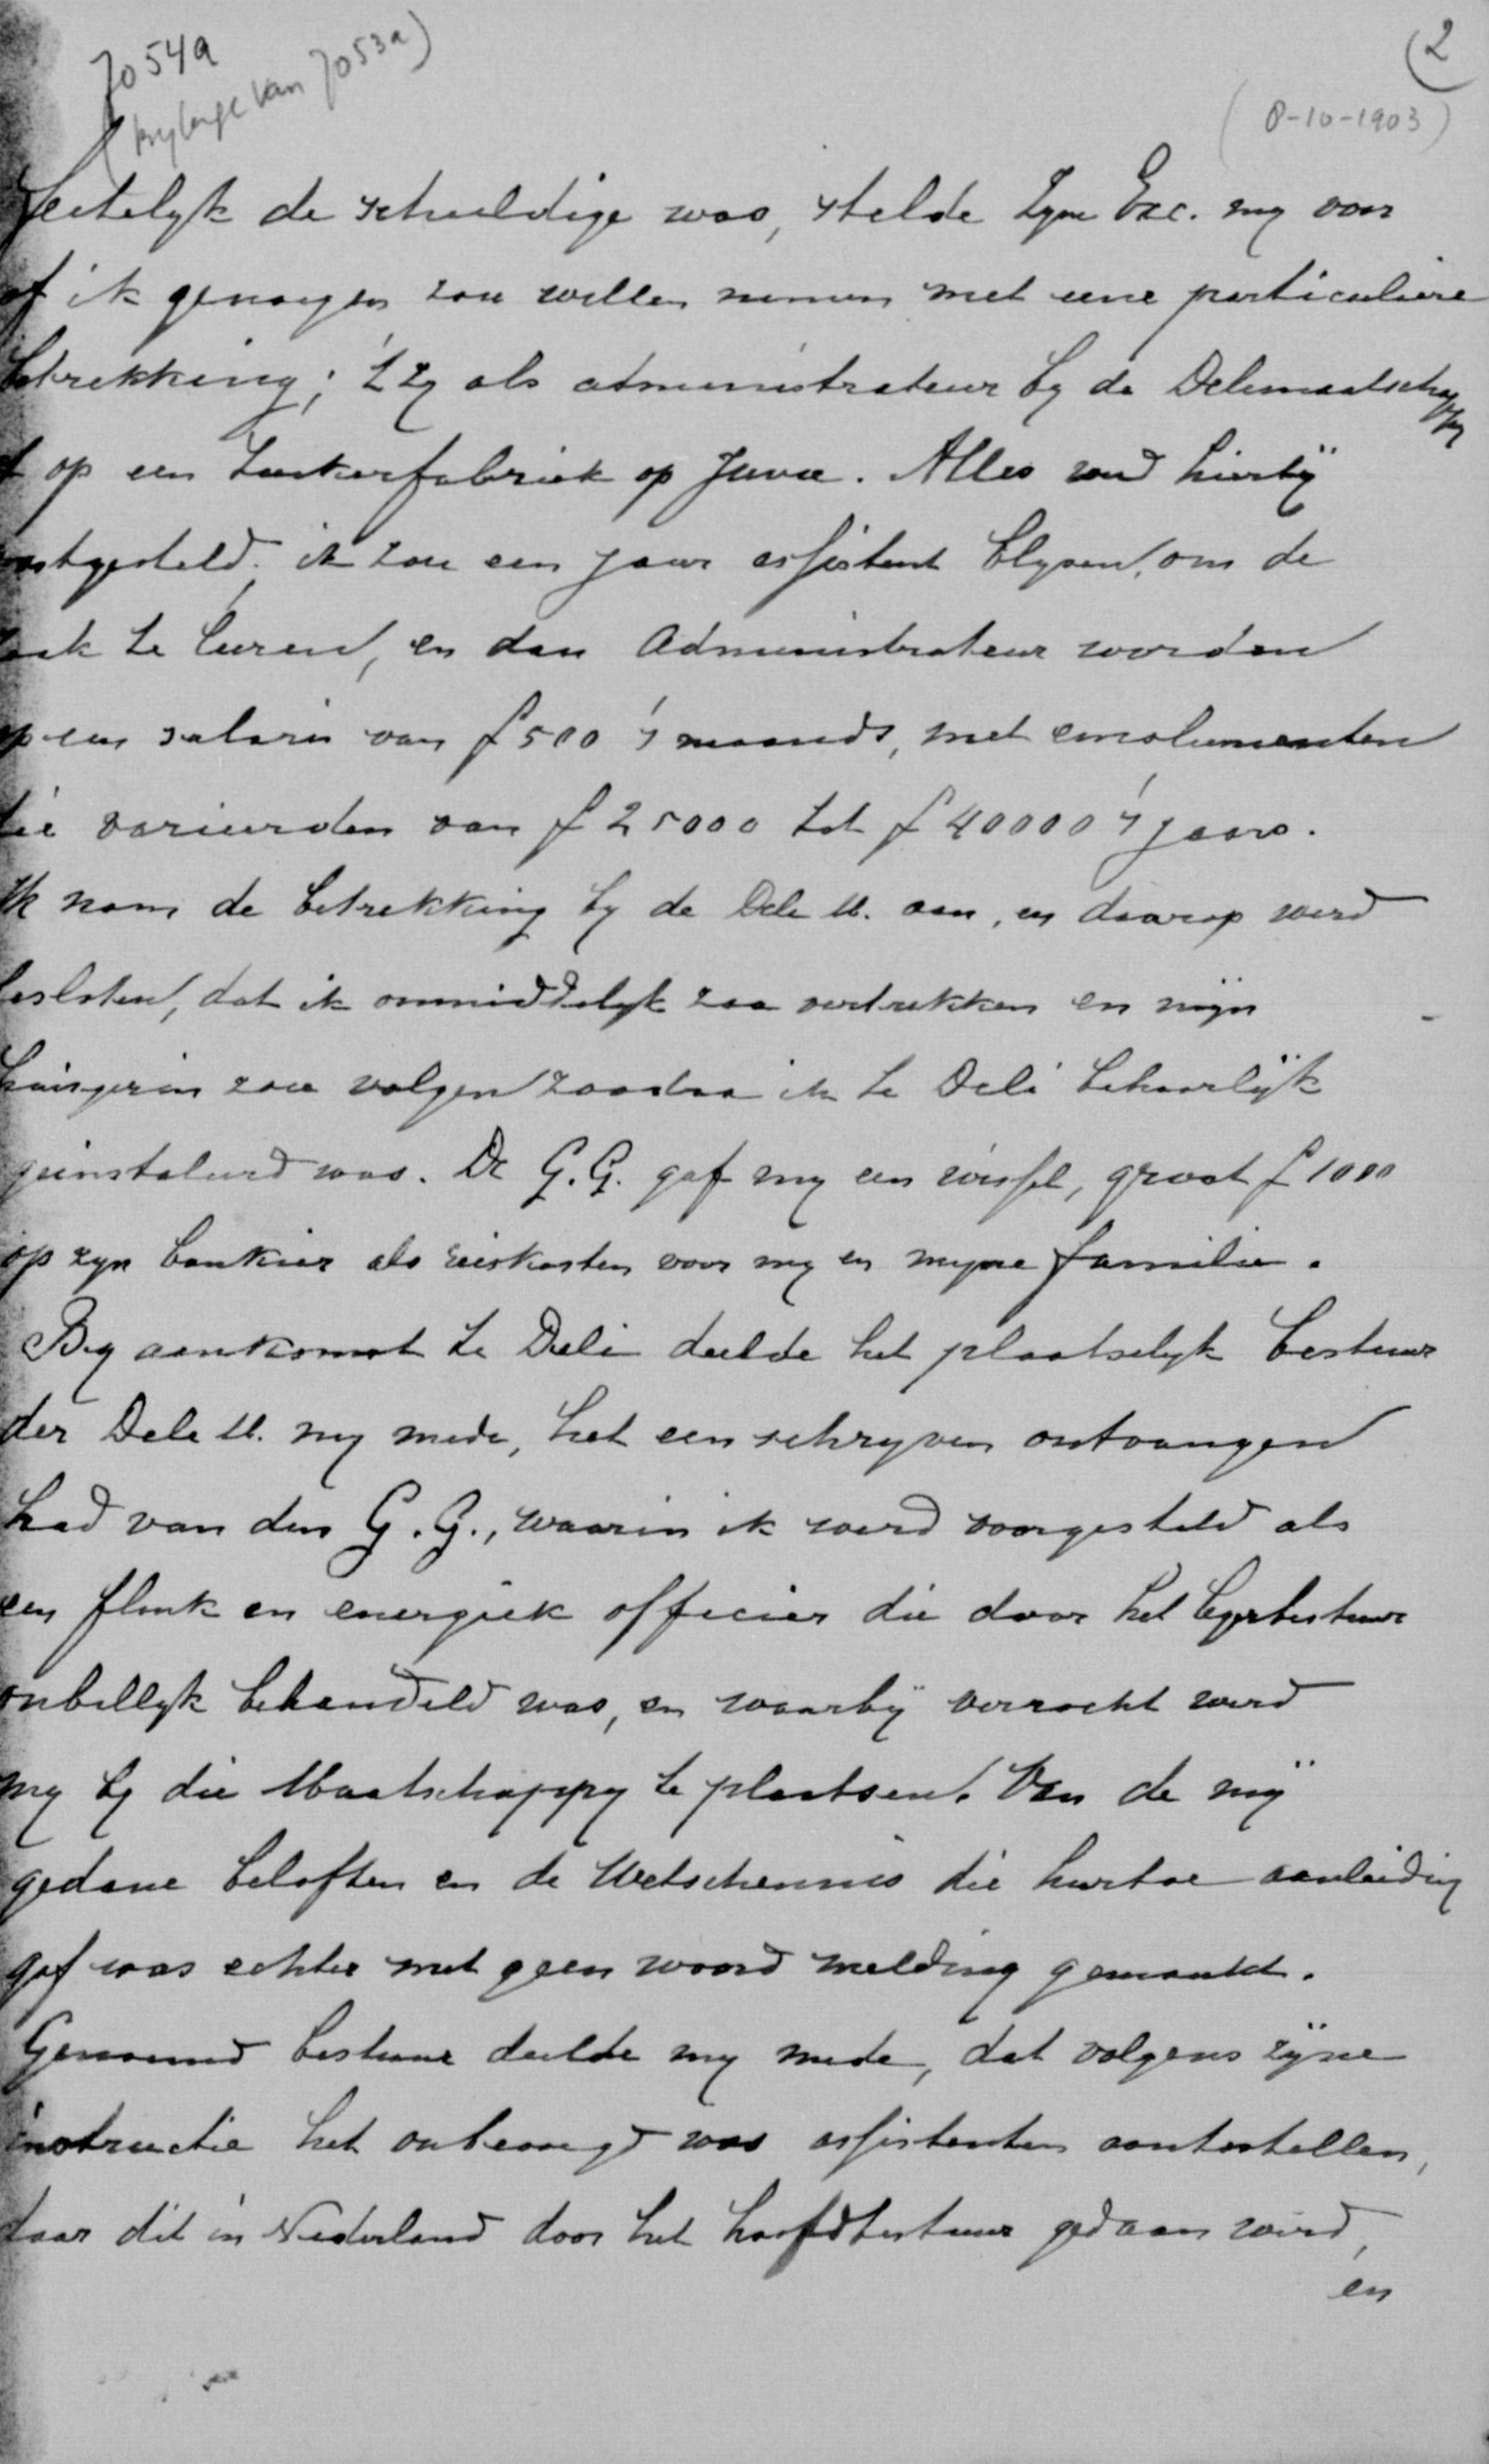 7054a
(bijlage van 7053a)
(2
(8-10-1903)
feitelyk de schuldige was, stelde Zyne Exc. my voor
of ik genoegen zou willen nemen met eene particuliere
betrekking; 't zy als administrateur by de Delimaatschappy
of op een suikerfabriek op Java. Alles werd hierbij
vastgesteld; ik zou een jaar assistent blyven, om de
zaak te leeren, en dan Administrateur worden
op een salaris van ƒ 500 's maands, met emolumenten
die varieerden van ƒ 25000 tot ƒ 40000 's jaars.
Ik nam de betrekking by de Deli M. aan, en daarop werd
besloten, dat ik onmiddelyk zou vertrekken en mijn
huisgezin zou volgen zoodra ik te Deli behoorlijk
geinstaleerd was. De G.G. gaf my een wissel, groot ƒ 1000
op zyn bankier als reiskosten voor my en myne familie.
By aankomst te Deli deelde het plaatselyk bestuur
der Deli M. my mede, het een schryven ontvangen
had van den G.G., waarin ik werd voorgesteld als
een flink en energiek officier die door het legerbestuur
onbillyk behandeld was, en waarbij verzocht werd
my by die Maatschappy te plaatsen. Van de mij
gedane beloften en de Wetschennis die hiertoe aanleiding
gaf was echter met geen woord melding gemaakt.
Genoemd bestuur deelde my mede, dat volgens zijne
instructie het onbevoegd was assistenten aantestellen,
daar dit in Nederland door het hoofdbestuur gedaan werd,
en